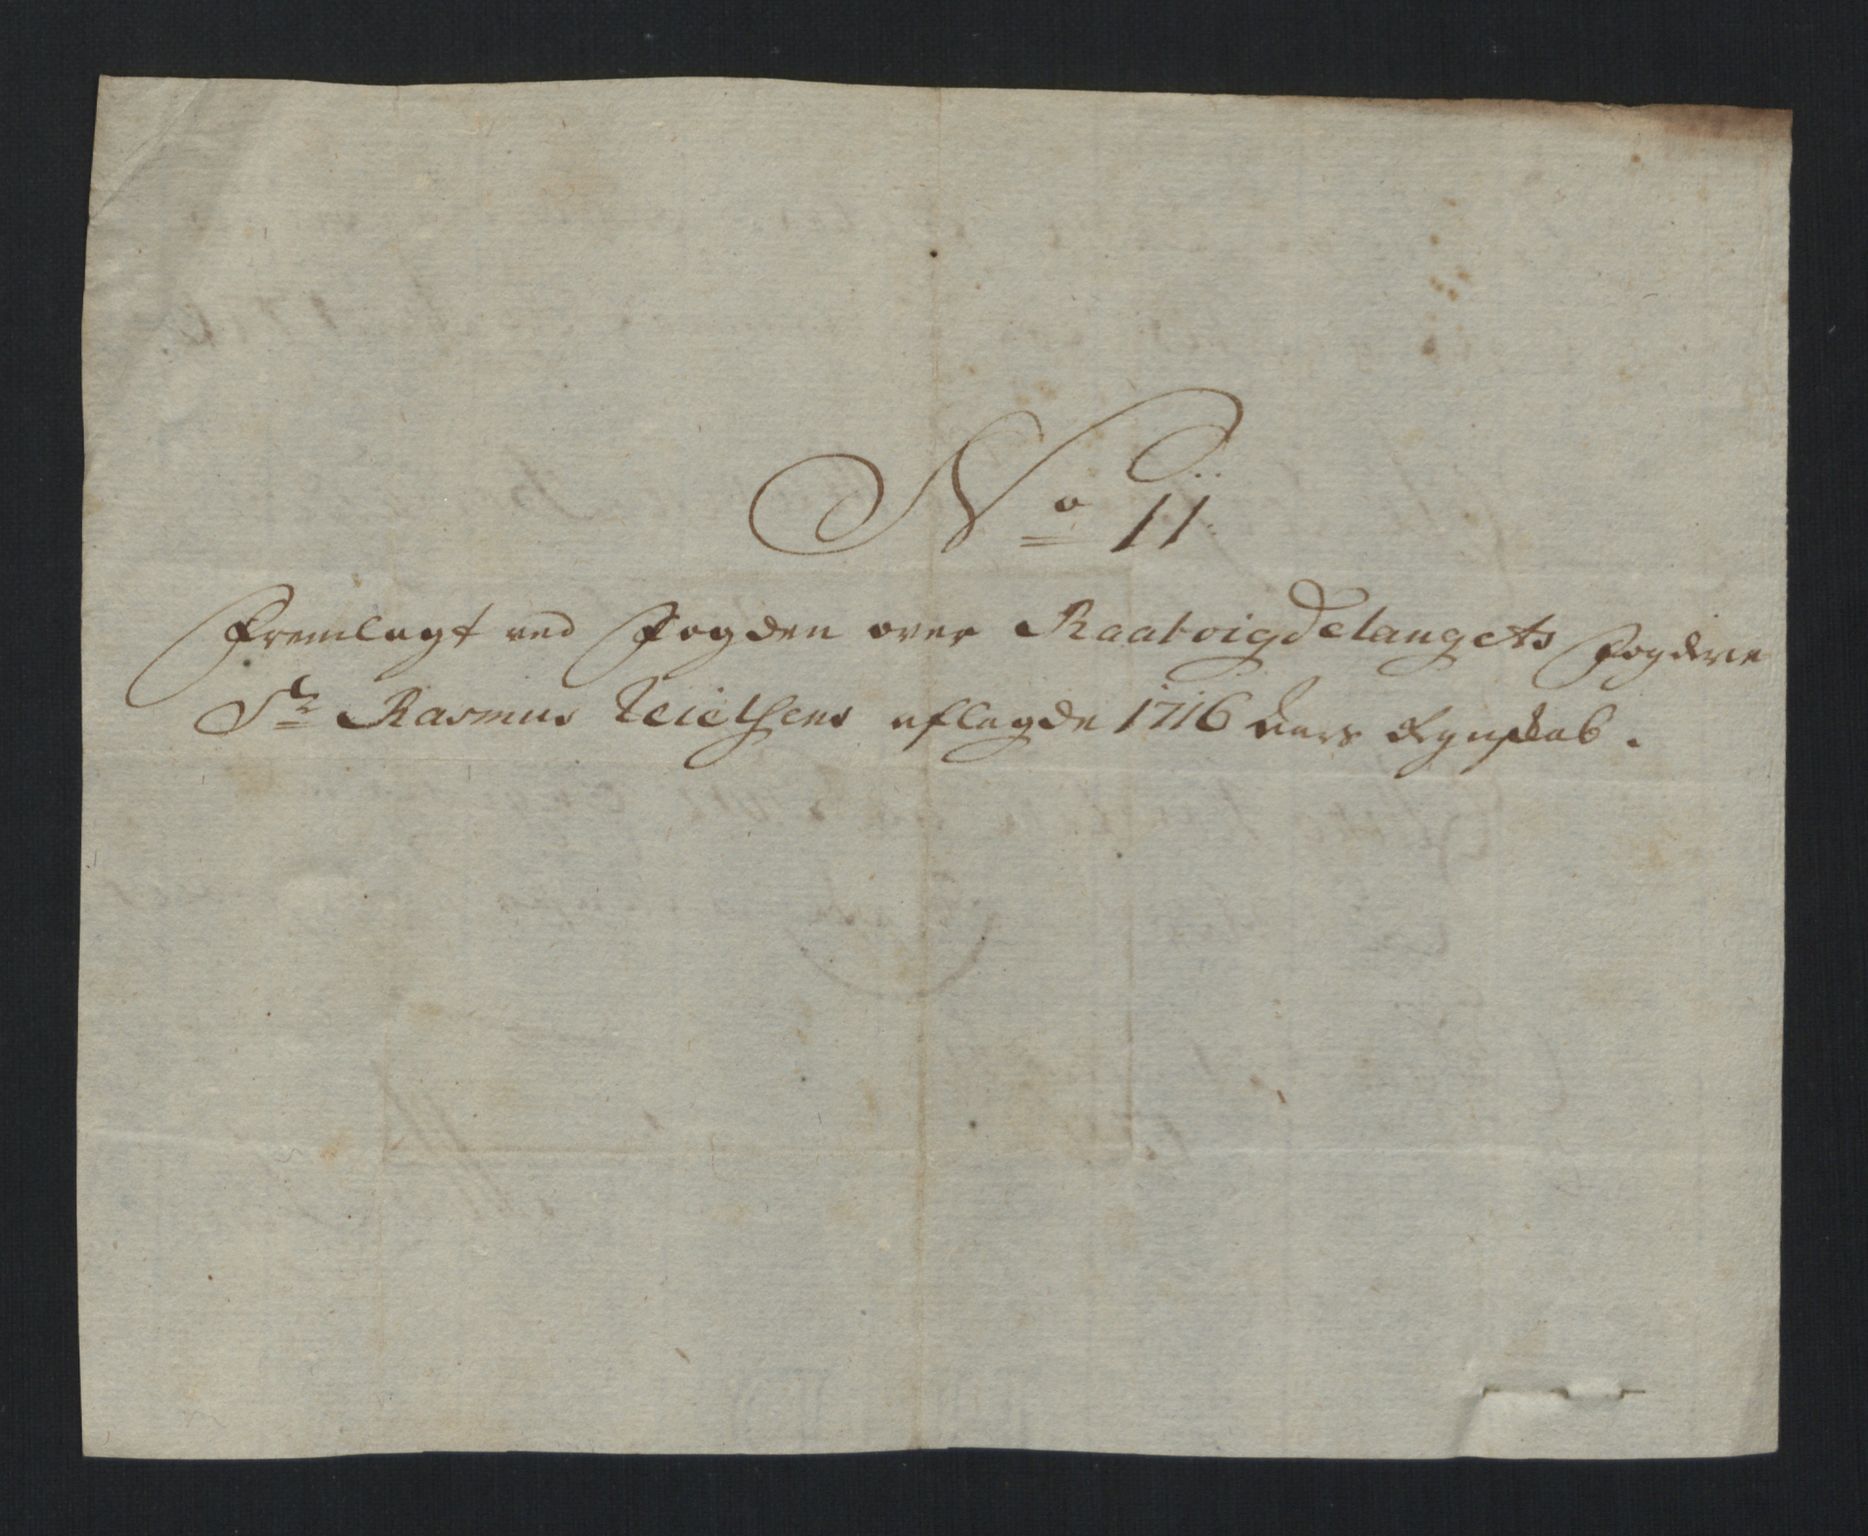 No 11
Fremlagt ved Fogden over Raabøigdelaugets Fogderie
Sr Rasmus Teielsens aflagde 1716 Aars Regnskab.